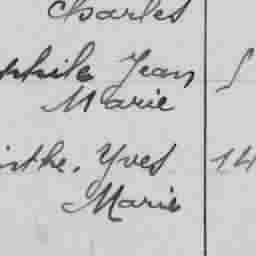 Charles
phile Jean
Marie
inthe, Yves 14
Marie